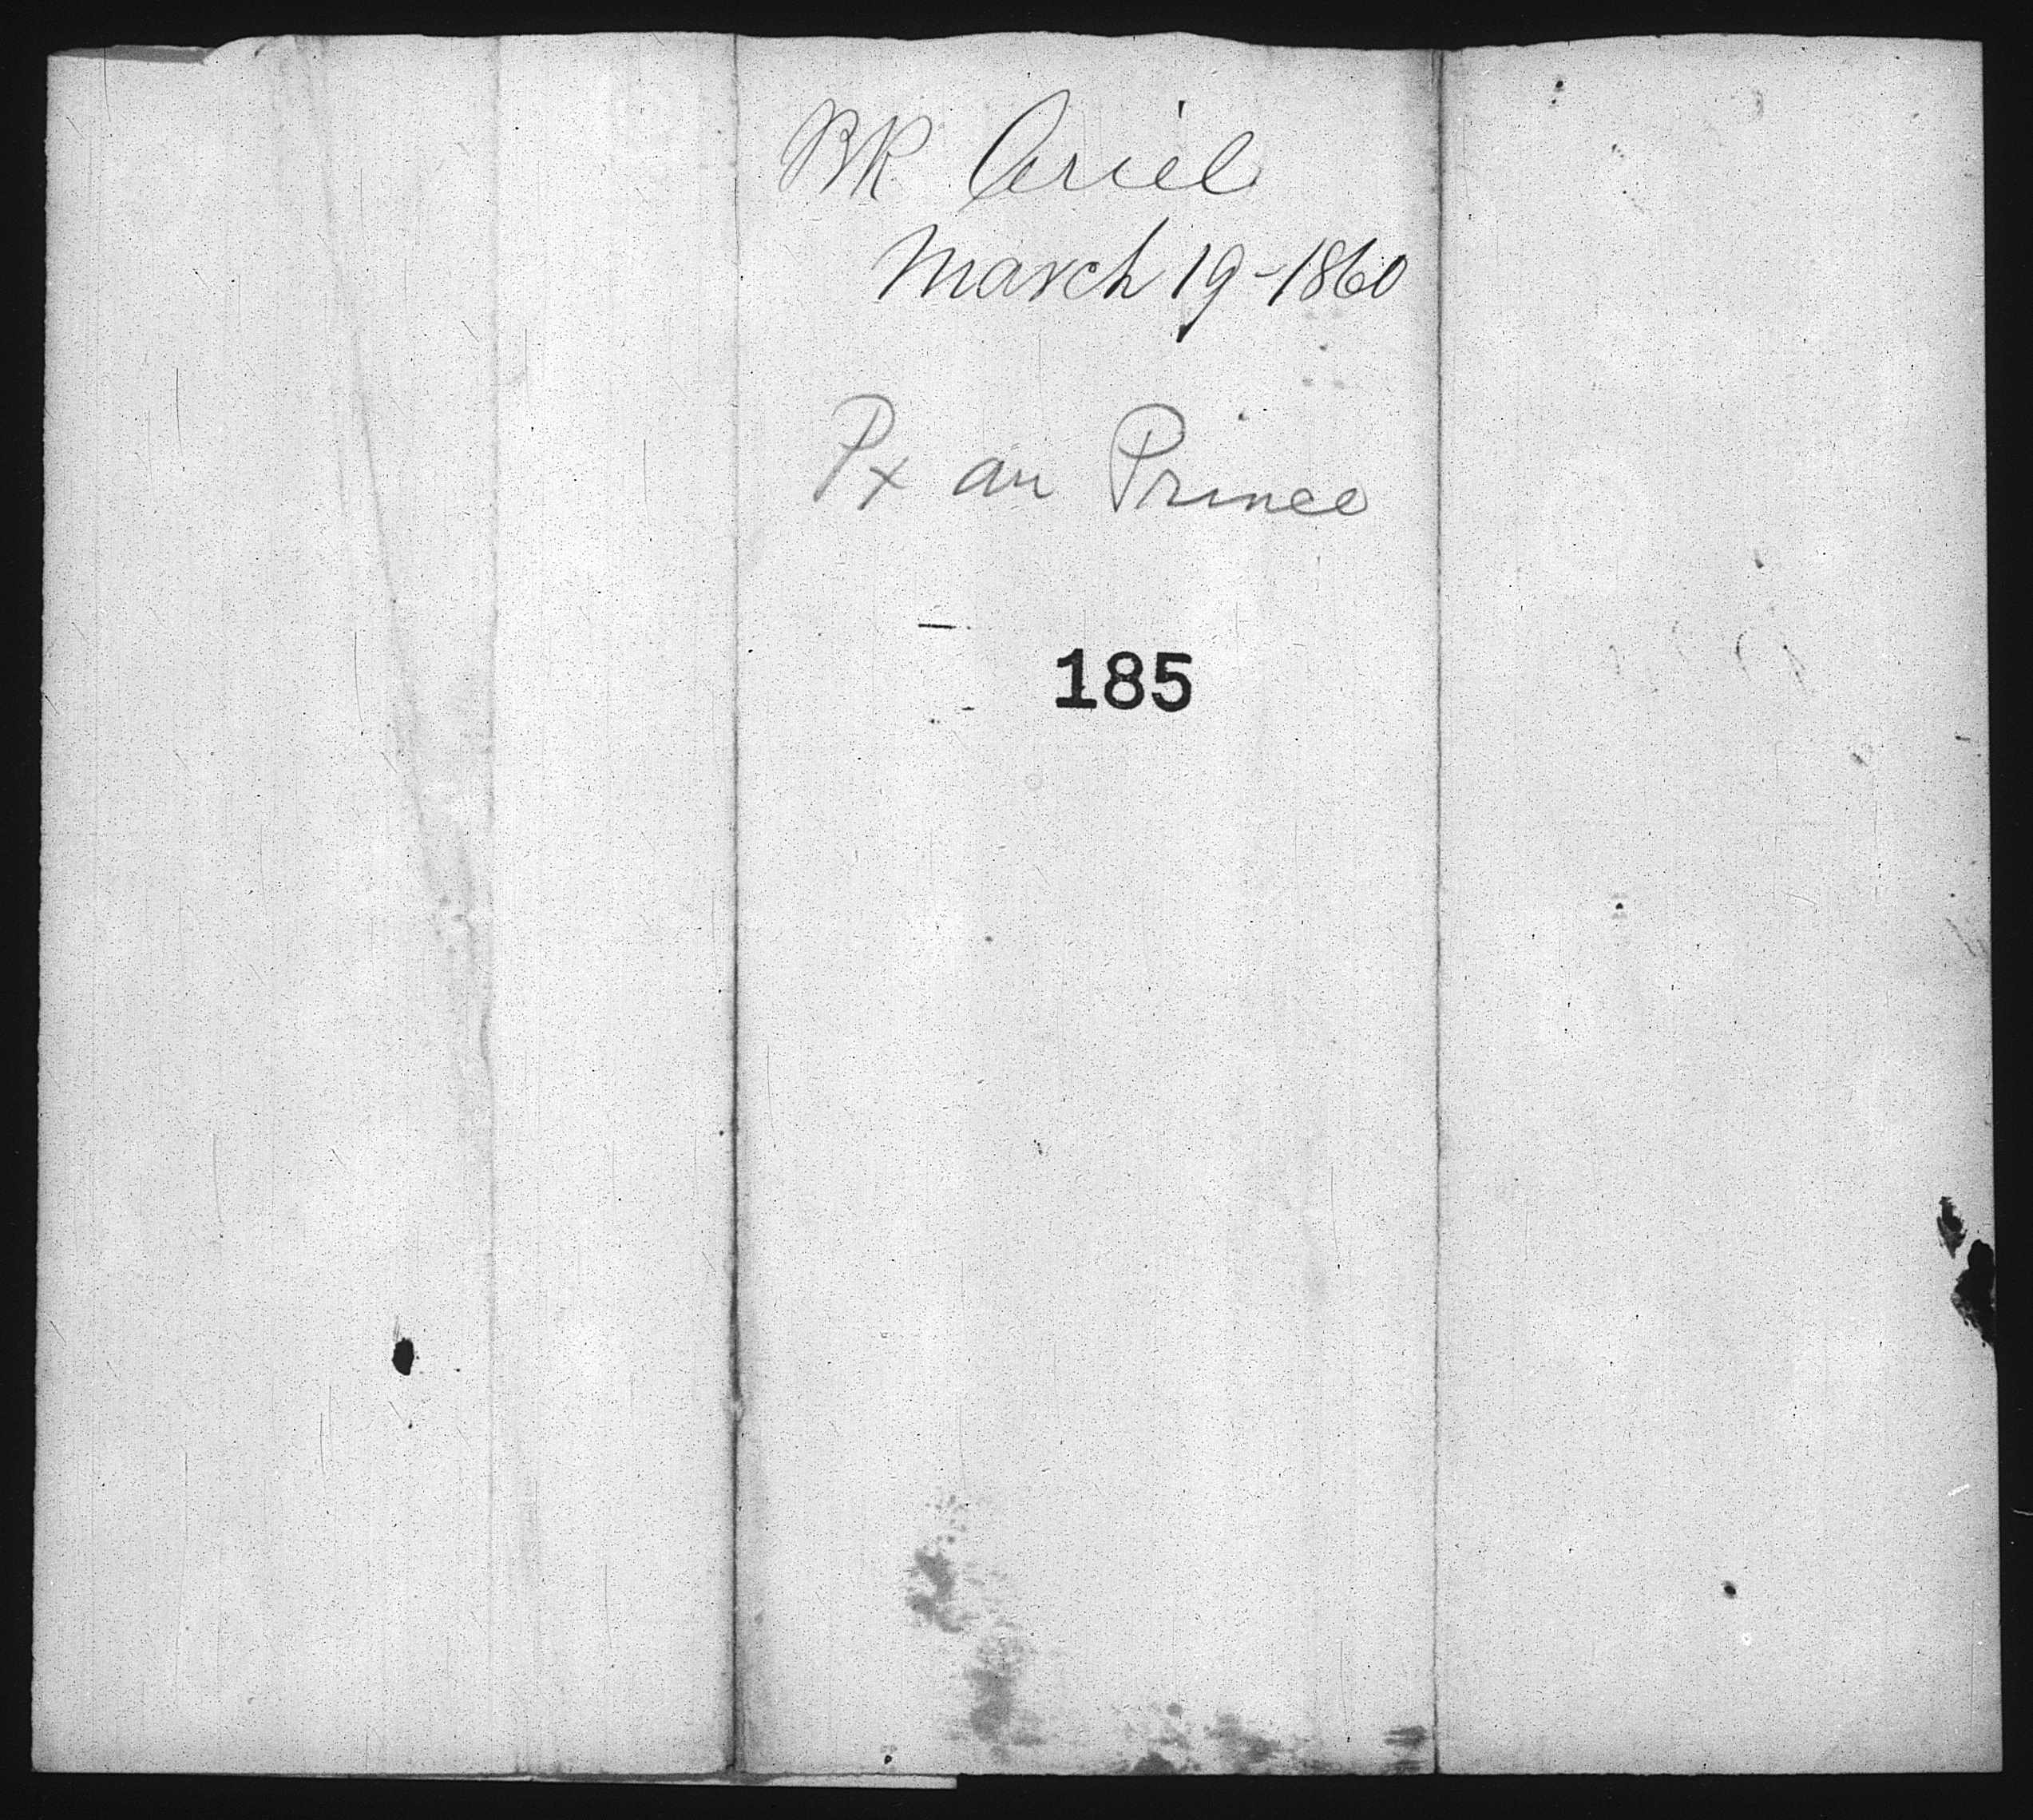 BK Ariel
March 19-1860
Px au Prince
185